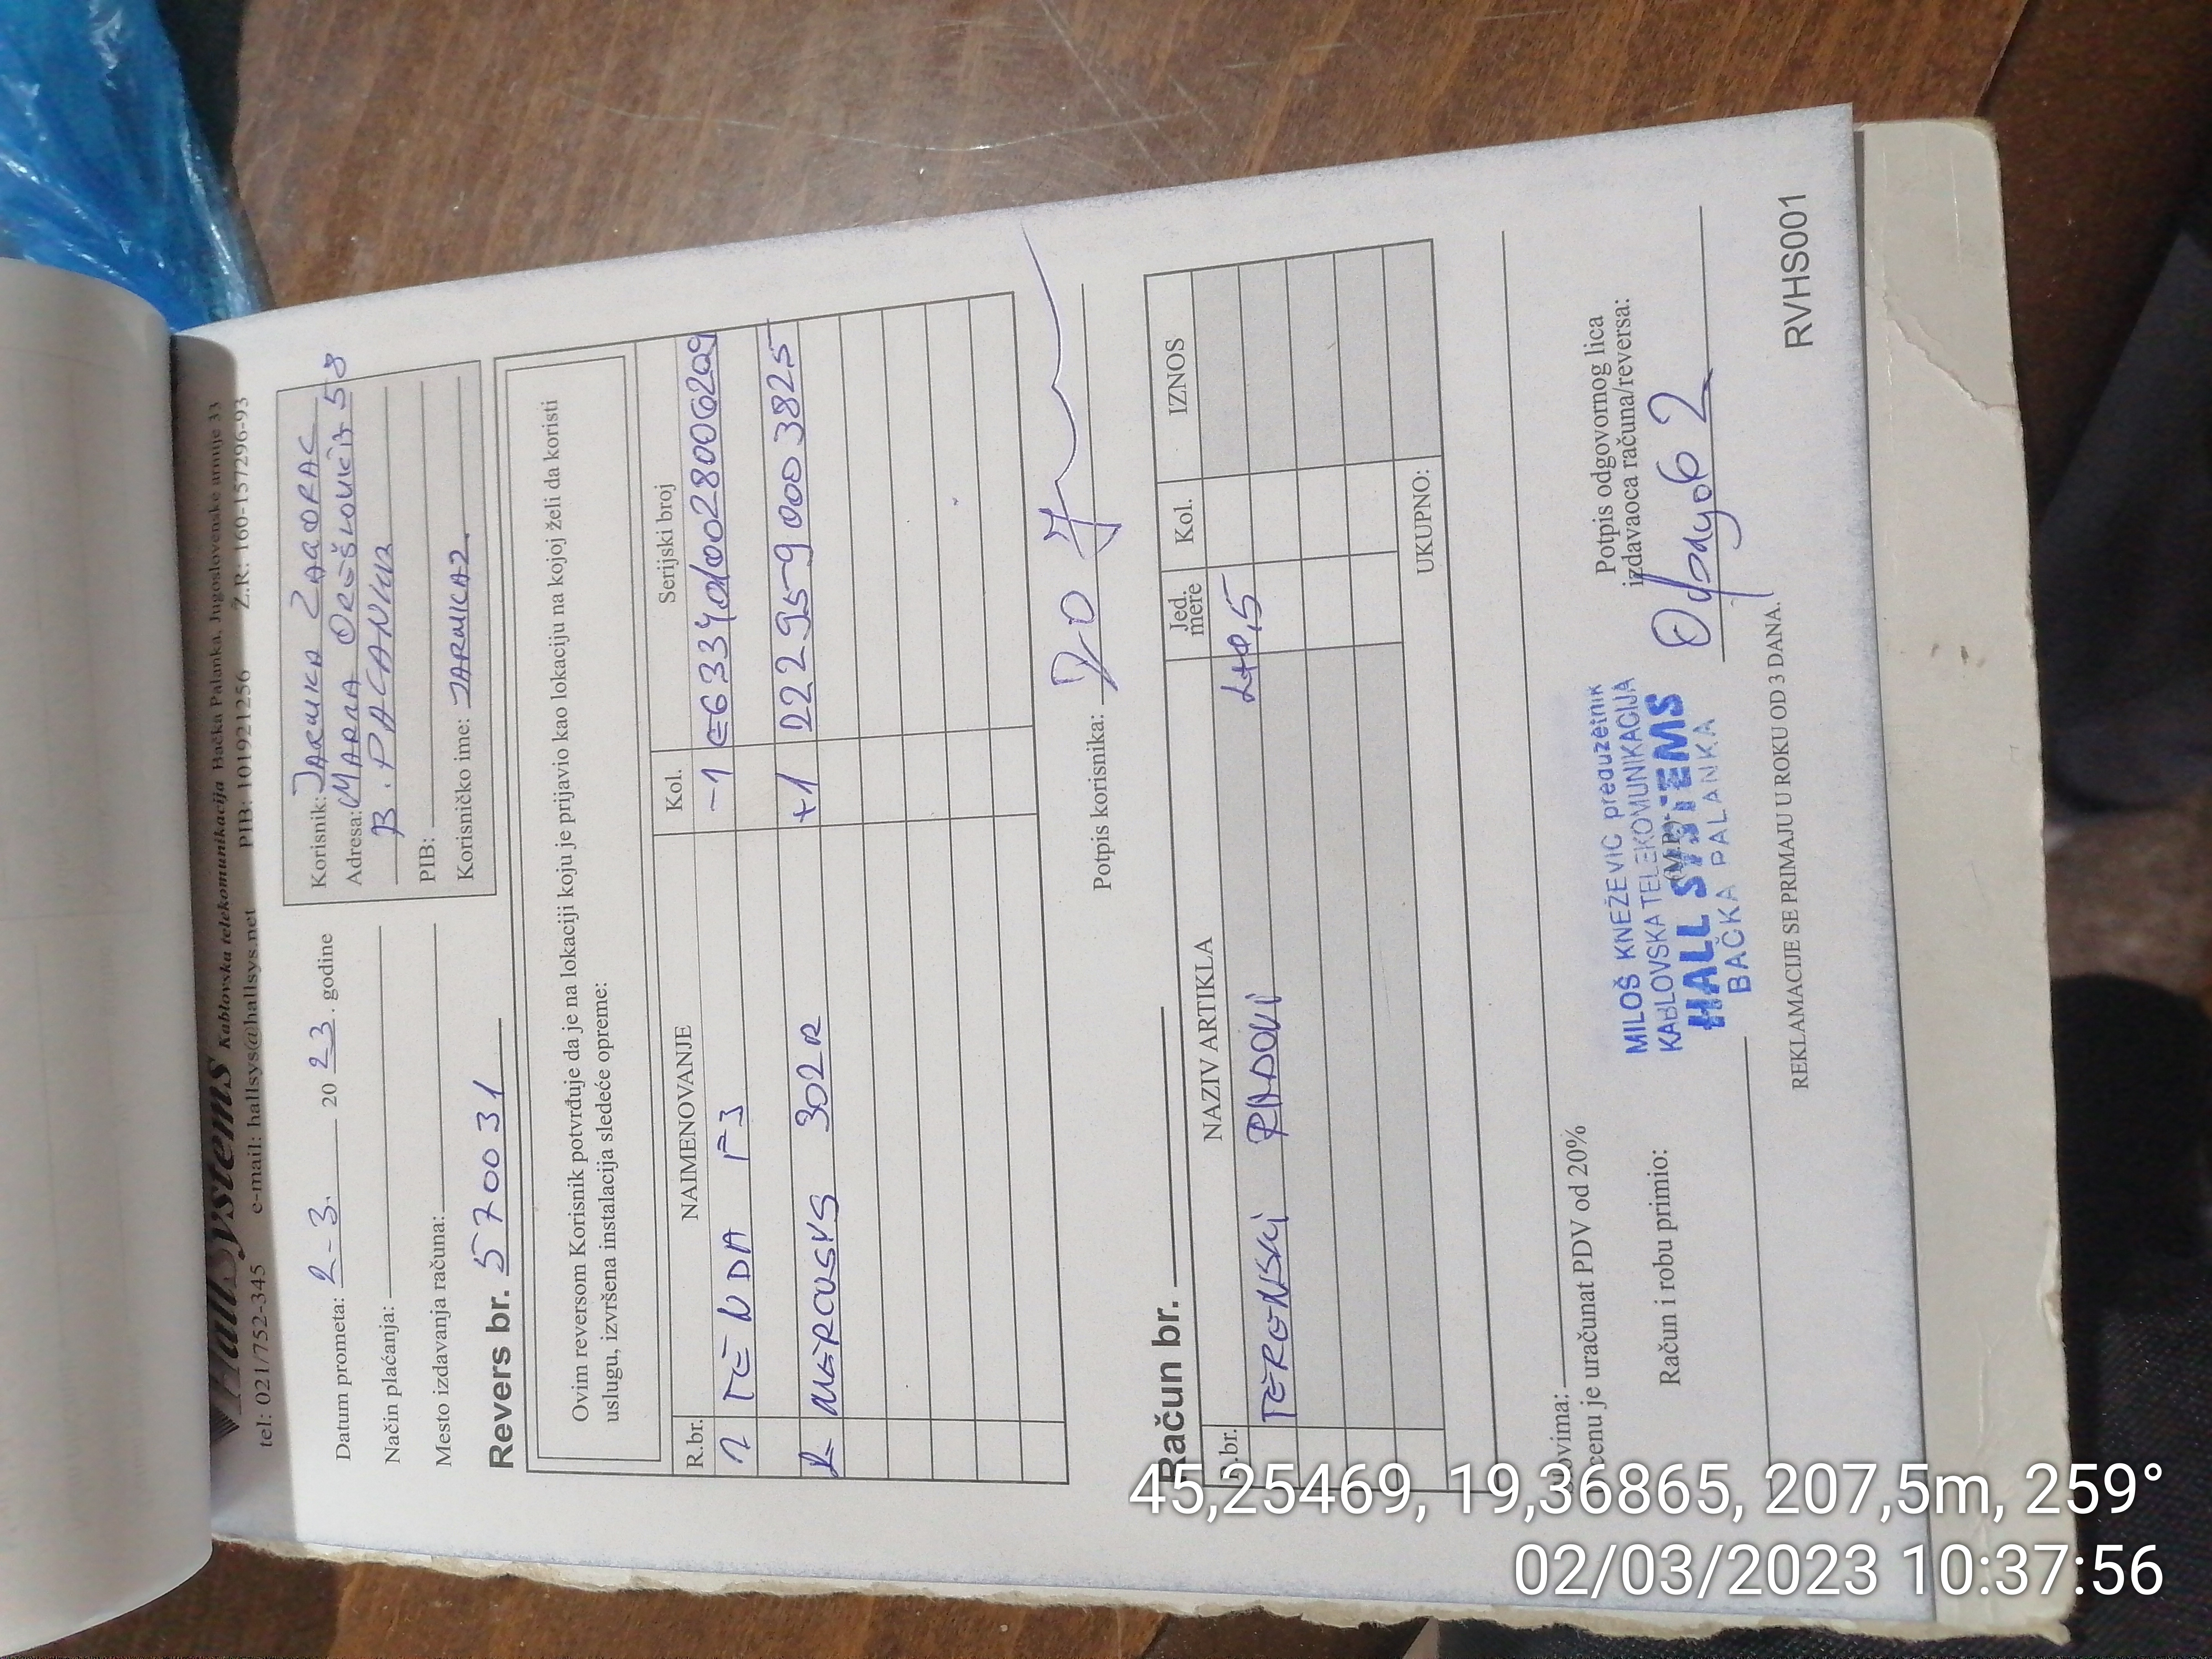 HallSystems Kablovska telekomunikacija Bačka Palanka, Jugoslovenske armije 33
tel: 021/752-345 e-mail: hallsys@hallsys.net PIB: 101921256 Ž.R: 160-157296-93
Datum prometa: 2-3. 20 23. godine
Način plaćanja:
Mesto izdavanja računa:
Korisnik: JARMILA ZAGORAC
Adresa: MARNA OREŠKOVIĆA 58
B. PALANKA
PIB:
Korisničko ime: JARMILAZ
Revers br. 5700 31
Ovim reversom Korisnik potvrđuje da je na lokaciji koju je prijavio kao lokaciju na kojoj želi da koristi
uslugu, izvršena instalacija sledeće opreme:
R.br. NAIMENOVANJE Kol. Serijski broj
1 TENDA F3 -1
2 MERCUSYS 302R +1 22295-9 000 3825
Potpis korisnika:
Račun br.
R.br. NAZIV ARTIKLA Jed. mere Kol. IZNOS
TERENSKI RADOVI
UKUPNO:
Slovima:
cenu je uračunat PDV od 20%
Račun i robu primio:
(M.P.)
MILOŠ KNEŽEVIĆ preduzetnik
KABLOVSKA TELEKOMUNIKACIJA
HALL SYSTEMS
BAČKA PALANKA
Potpis odgovornog lica
izdavaoca računa/reversa:
REKLAMACIJE SE PRIMAJU U ROKU OD 3 DANA.
RVHS001
45,25469, 19,36865, 207,5m, 259°
02/03/2023 10:37:56